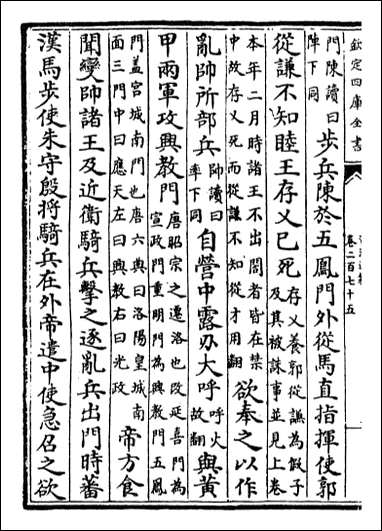 欽定四庫全書
卷二百七十五
門陳讀曰
陣下同
步兵陳於五鳳門外從馬直指揮使郭
從謙不知睦王存乂已死
存乂養郭從謙為假子
及其被誅事並見上卷
本年二月時諸王不出閤者皆在禁
中故存乂死而從謙不知從才用翻
欲奉之以作
亂帥所部兵
帥讀曰
率下同
自營中露刃大呼
呼火
故翻
與黃
甲兩軍攻興教門
唐昭宗之遷洛也改延喜門為
宣政門重明門為興教門五鳳
門蓋宮城南門也唐六典曰洛陽皇城南
面三門中曰應天左曰興教右曰光政
帝方食
聞變帥諸王及近衛騎兵擊之逐亂兵出門時蕃
漢馬步使朱守殷將騎兵在外帝遣中使急召之欲